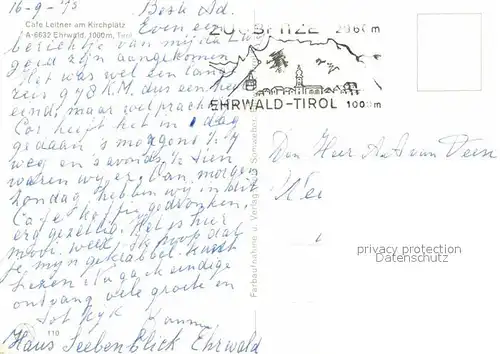 16-9-75 Beste Ad.
Cafe Leitner am Kirchplatz
A-6632 Ehrwald, 1000m, Tirol
Even een
berichtje van mij da
goed zijn aangekomen
Het was wel een lange
reis 948 K.M. dus een heel
eind, maar wel prachtig
Cor heeft het in 1 dag
gedaan 's morgens
weg en s'avonds 1/2 tien
waren wij er. Van morgen
Zondag hebben wij in dit
Cafe koffie gedronken,
erg gezellig. Het is hier
mooi weer. Ik hoop dat
je mijn gekrabbel kunt
lezen
ontvang vele groeten
Tot kijk
110
Haus Seebenblick Ehrwald
Farbaufnahme u. Verlag
ZUGSPITZE 2960m
EHRWALD-TIROL 1000m
Den Heer A. van Veen
privacy protection
Datenschutz